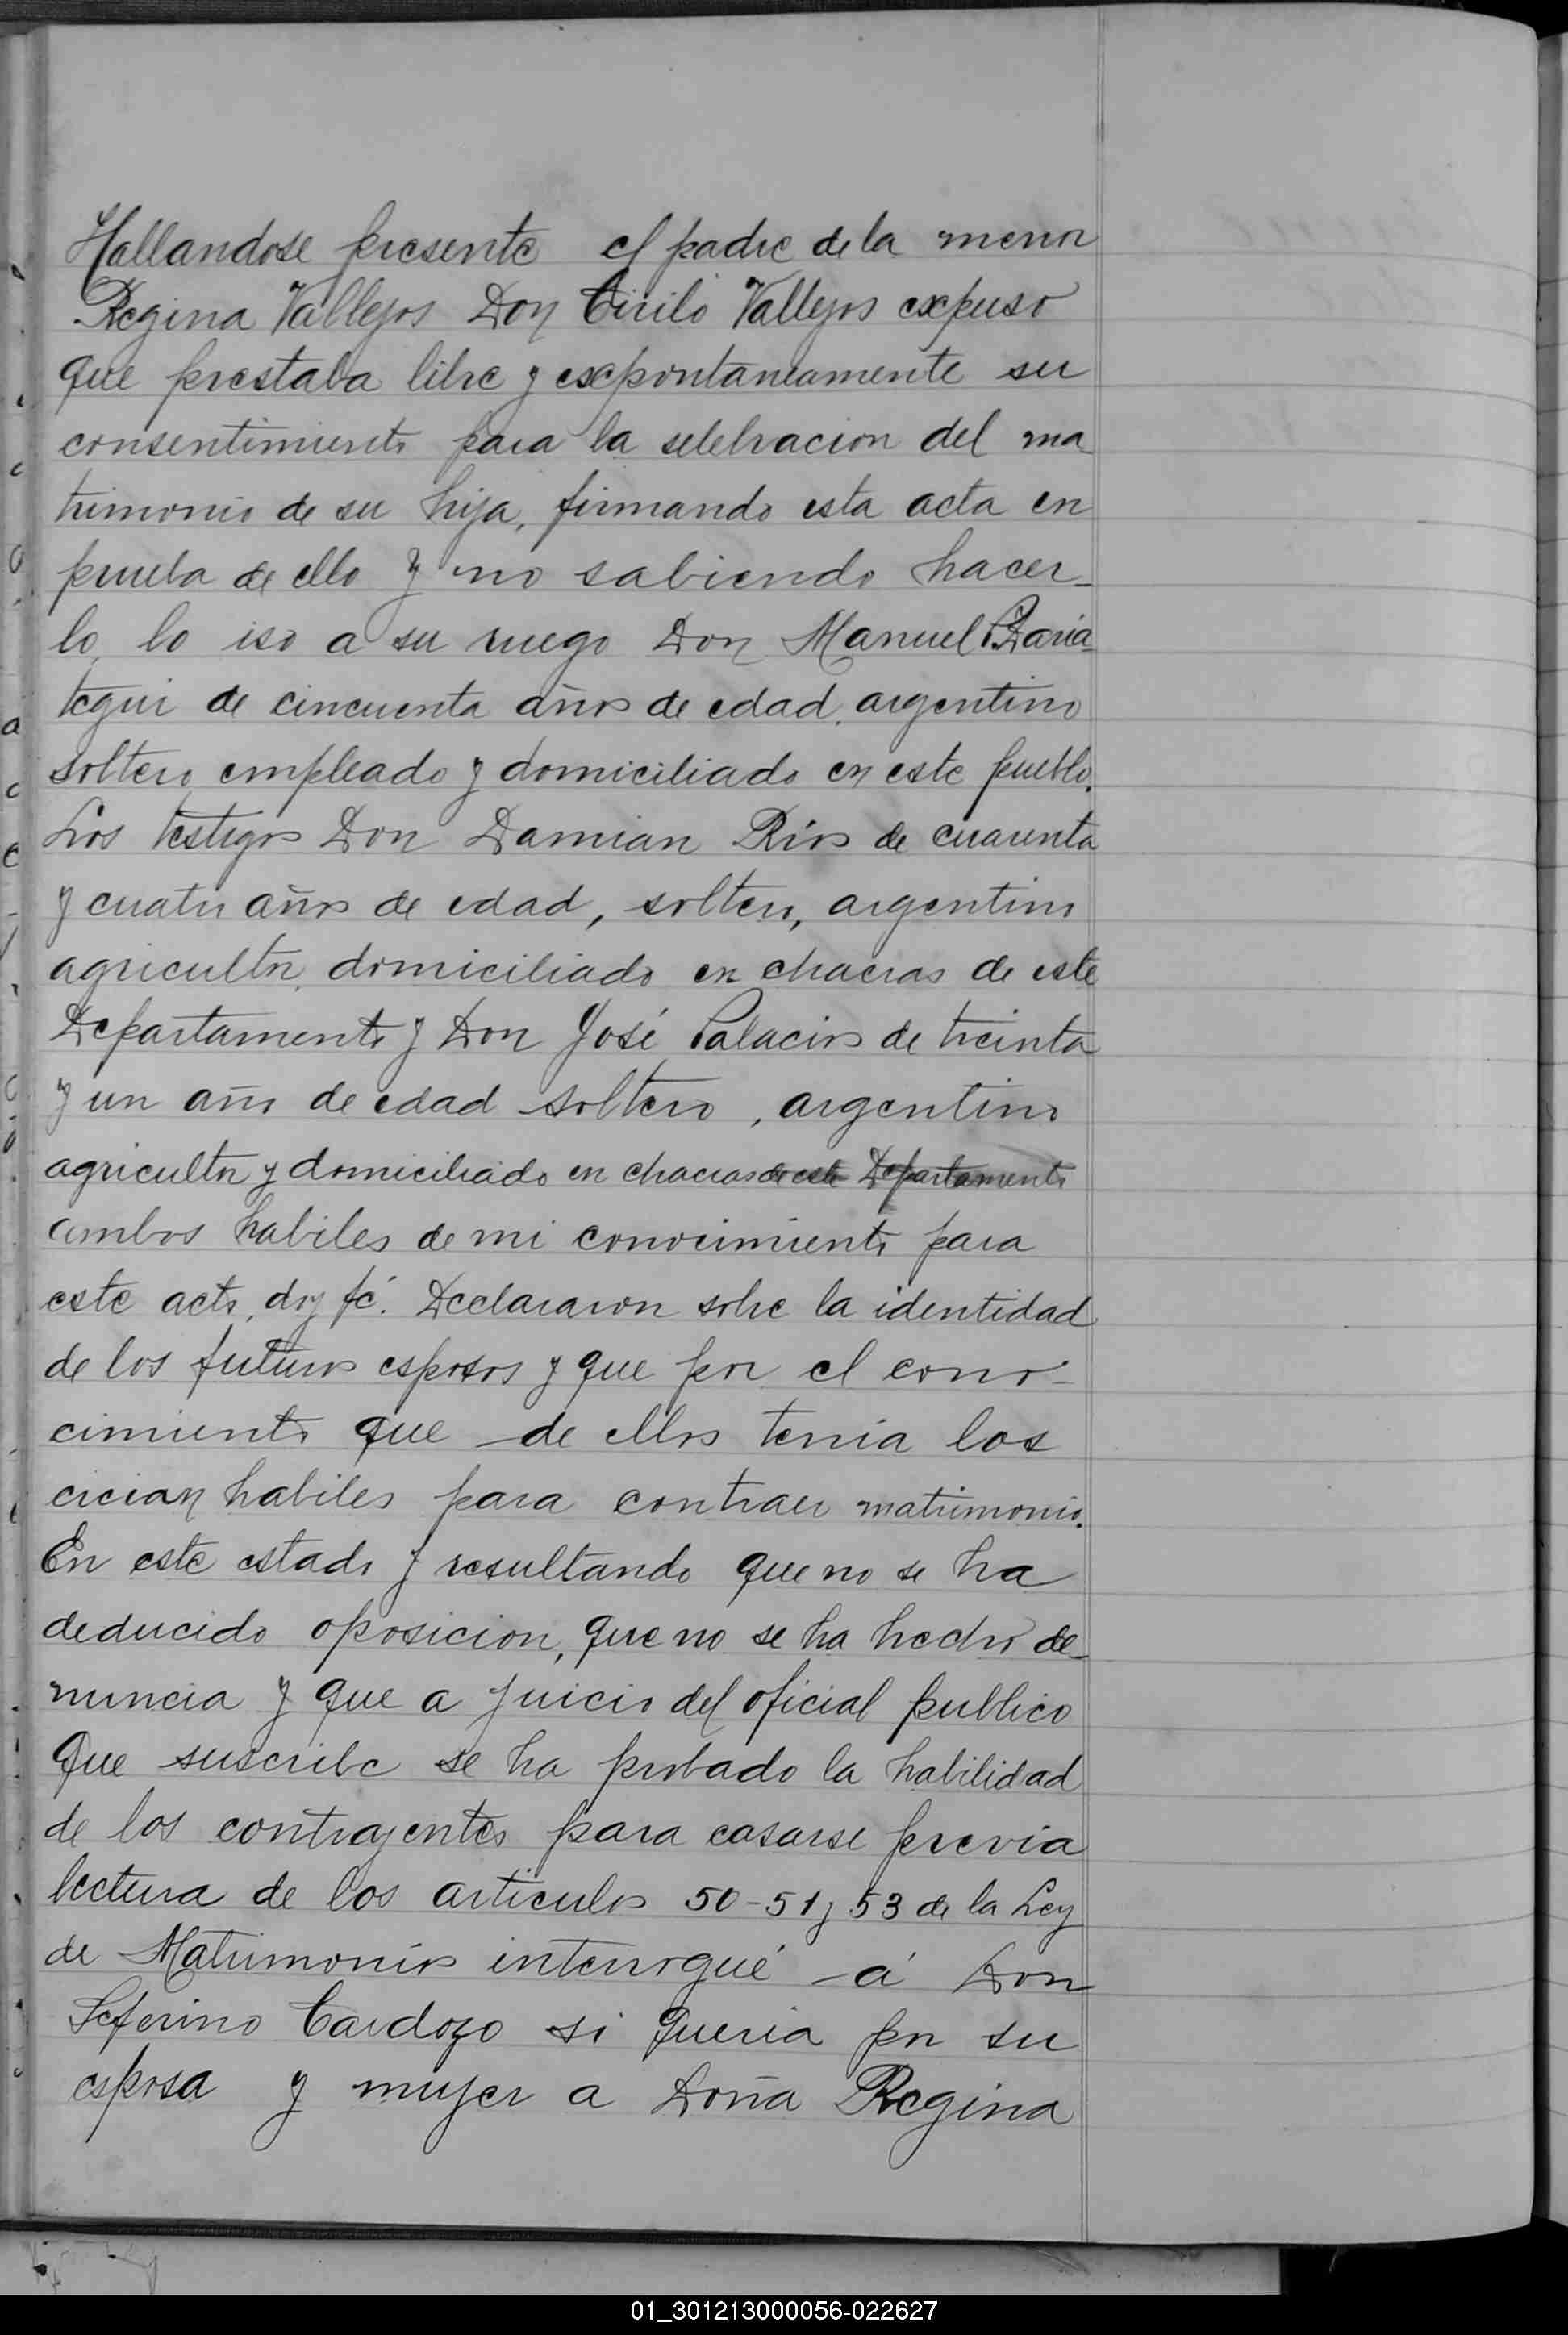 Hallandose presente el padre de la menor
Regina Vallejos Don Cirilo Vallejos expuso
que prestaba libre y exepontaneamente su
consentimiento para la selebracion del ma
trimonio de su hija, firmando esta acta en
prueba de ello y no sabiendo hacer-
lo, lo iso a su ruego Don Manuel
tegui de cincuenta años de edad, argentino
soltero, empleado y domiciliado en este pueblo.
Los testigos Don Damian Rios de cuarenta
y cuatro años de edad, soltero, argentino
agricultor, domiciliado en chacras de este
Departamento y Don José Palacios de treinta
y un año de edad soltero, argentino
agricultor y domiciliado en chacras de este Departamento
ambos habiles de mi conocimiento para
este acto, doy fé. Declararon sobre la identidad
de los futuros esposos y que por el cono-
cimiento que de ellos tenia los
creian habiles para contraer matrimonio.
En este estado y resultando que no se ha
deducido oposicion, que no se ha hecho de-
nuncia y que a juicio del oficial publico
que suscribe se ha probado la habilidad
de los contrayentes para casarse previa
lectura de los articulos 50-51 y 53 de la Ley
de Matrimonios interrogué á Don
Seferino Cardozo si queria por su
esposa y mujer a Doña Regina
01_301213000056-022627